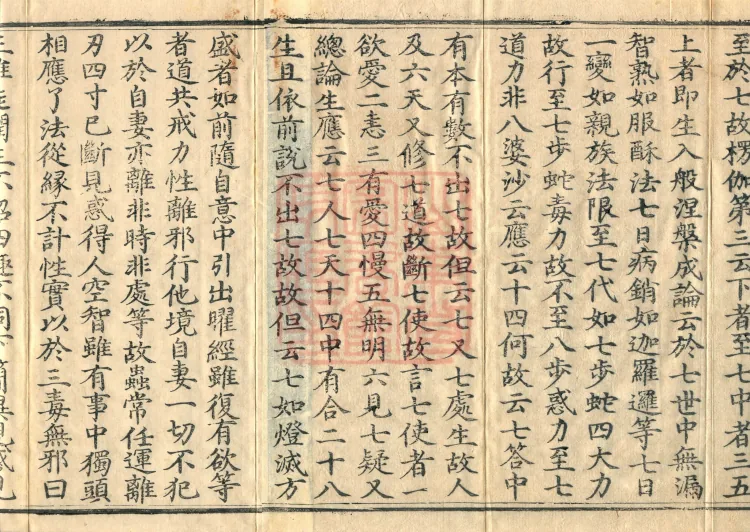 至於七故楞伽第三云下者至七中者三五
上者即生入般涅槃成論云於七世中無漏
智熟如服酥法七日病銷如迦羅邏等七日
一變如親族法限至七代如七步蛇四大力
故行至七步蛇毒力故不至八步惑力至七
道力非八婆沙云應云十四何故云七答中
有本有數不出七故但云七又七處生故人
及六天又修七道故斷七使故言七使者一
欲愛二恚三有愛四慢五無明六見七疑又
總論生應云七人七天十四中有合二十八
生且依前說不出七故故但云七如燈滅方
盛者如前隨自意中引出曜經雖復有欲等
者道共戒力性離邪行他境自妻一切不犯
以於自妻亦離非時非處等故蟲常任運離
刃四寸已斷見惑得人空智雖有事中獨頭
相應了法從緣不計性實以於三毒無邪曰